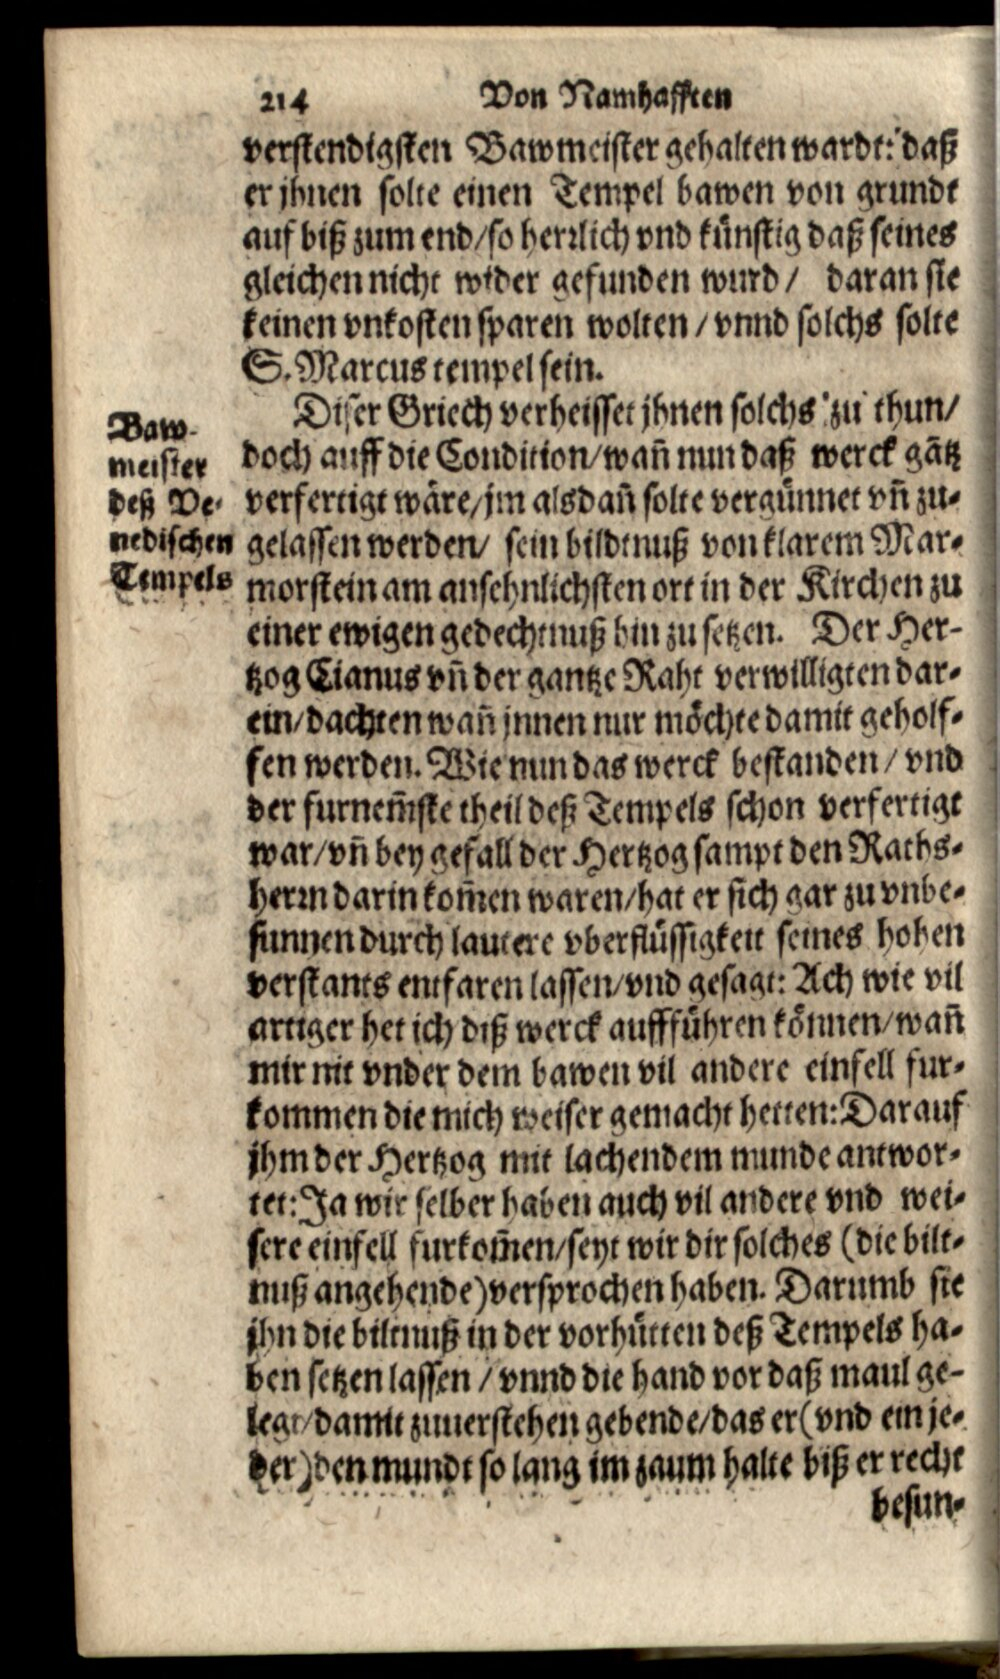 214 Von Namhafften
verstendigsten Bawmeister gehalten wardt: daß
er jhnen solte einen Tempel bawen von grundt
auf biß zum end/so herrlich vnd künstig daß seines
gleichen nicht wider gefunden wurd/ daran sie
keinen vnkosten sparen wolten/vnnd solchs solte
S. Marcus tempel sein.
Diser Griech verheisset jhnen solchs zu thun/
doch auff die Condition/wañ nun daß werck gãtz
verfertigt wäre/jm alsdañ solte vergünnet vñ zu-
gelassen werden/ sein bildtnuß von klarem Mar-
morstein am ansehnlichsten ort in der Kirchen zu
einer ewigen gedechtnuß hin zu setzen. Der Her-
tzog Cianus vñ der gantze Raht verwilligten dar-
ein/dachten wañ jnnen nur möchte damit geholf-
fen werden. Wie nun das werck bestanden/vnd
der furnem̃ste theil deß Tempels schon verfertigt
war/vñ bey gefall der Hertzog sampt den Raths-
herrn darin kom̃en waren/hat er sich gar zu vnbe-
sunnen durch lautere vberflüssigkeit seines hohen
verstants entfaren lassen/vnd gesagt: Ach wie vil
artiger het ich diß werck auffführen können/wañ
mir nit vnder dem bawen vil andere einfell fur-
kommen die mich weiser gemacht hetten: Darauf
jhm der Hertzog mit lachendem munde antwor-
tet: Ja wir selber haben auch vil andere vnd wei-
sere einfell furkom̃en/seyt wir dir solches (die bilt-
nuß angehende) versprochen haben. Darumb sie
jhn die biltnuß in der vorhütten deß Tempels ha-
ben setzen lassen/vnnd die hand vor daß maul ge-
legt/damit zuuerstehen gebende/das er (vnd ein je-
der) den mundt so lang im zaum halte biß er recht
besun-
Baw-
meister
deß Ve-
nedischen
Tempels